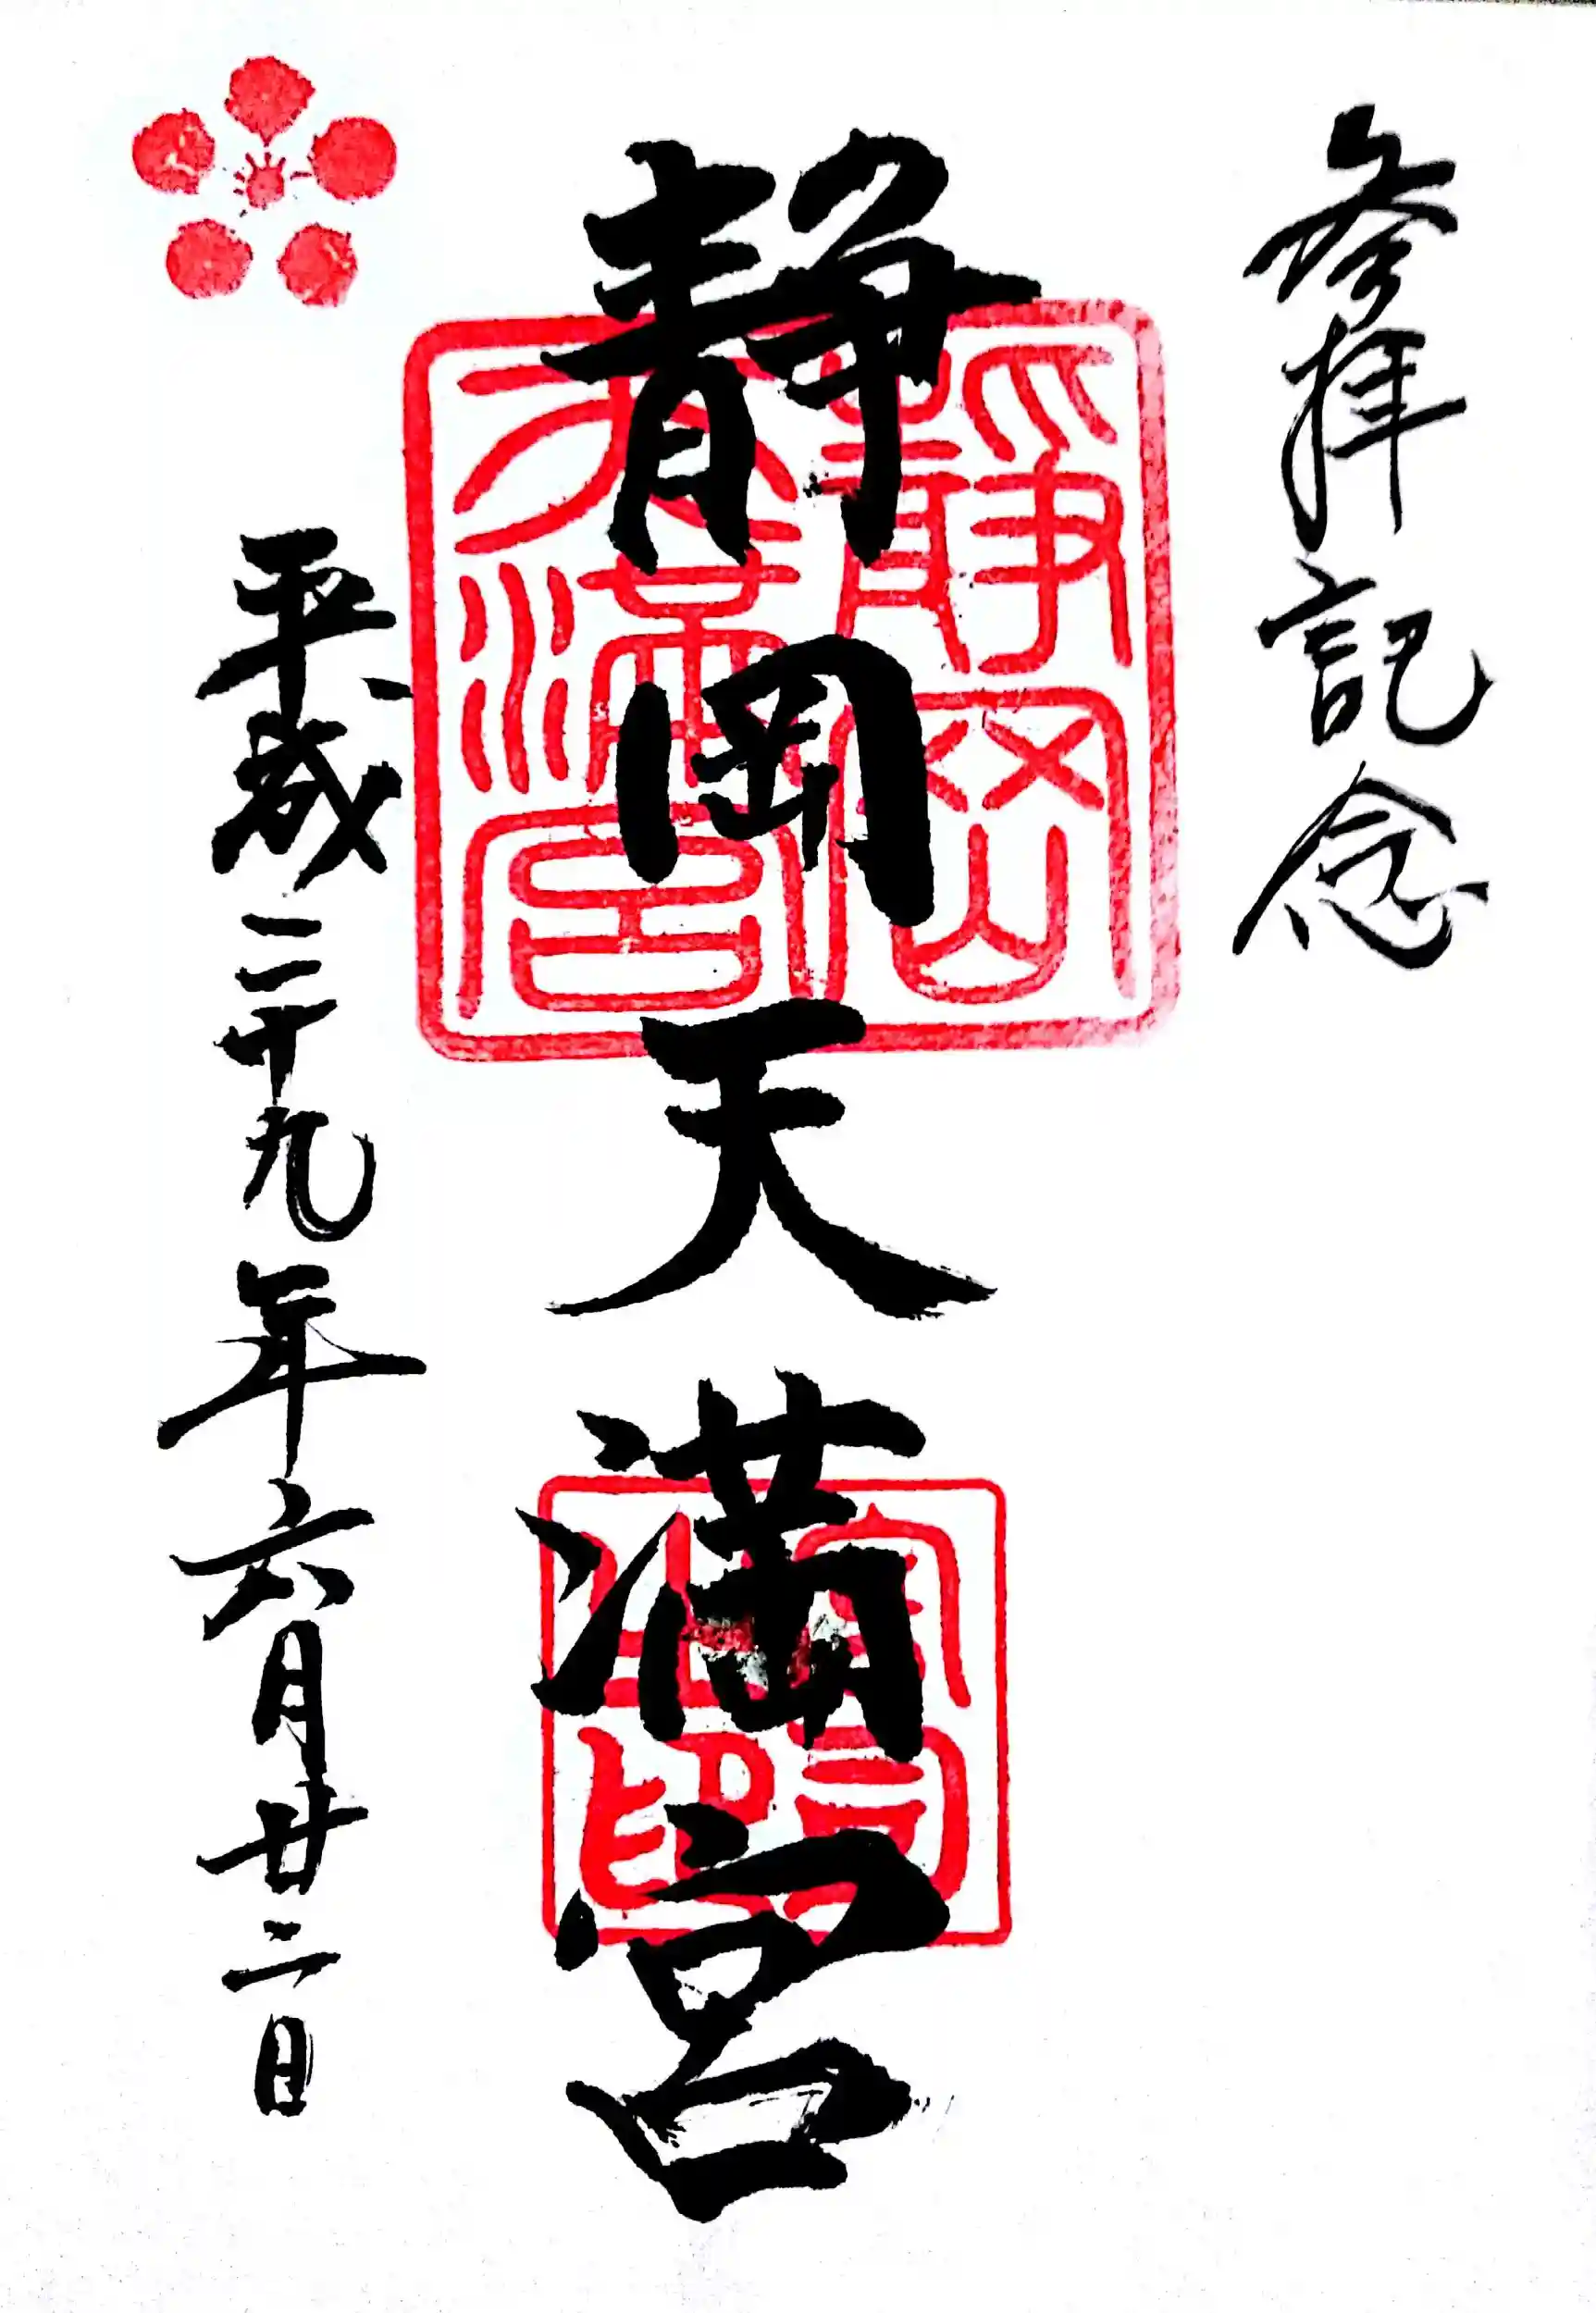 参拝記念
静岡天満宮
靜岡
天滿宮
平成二十九年六月廿二日